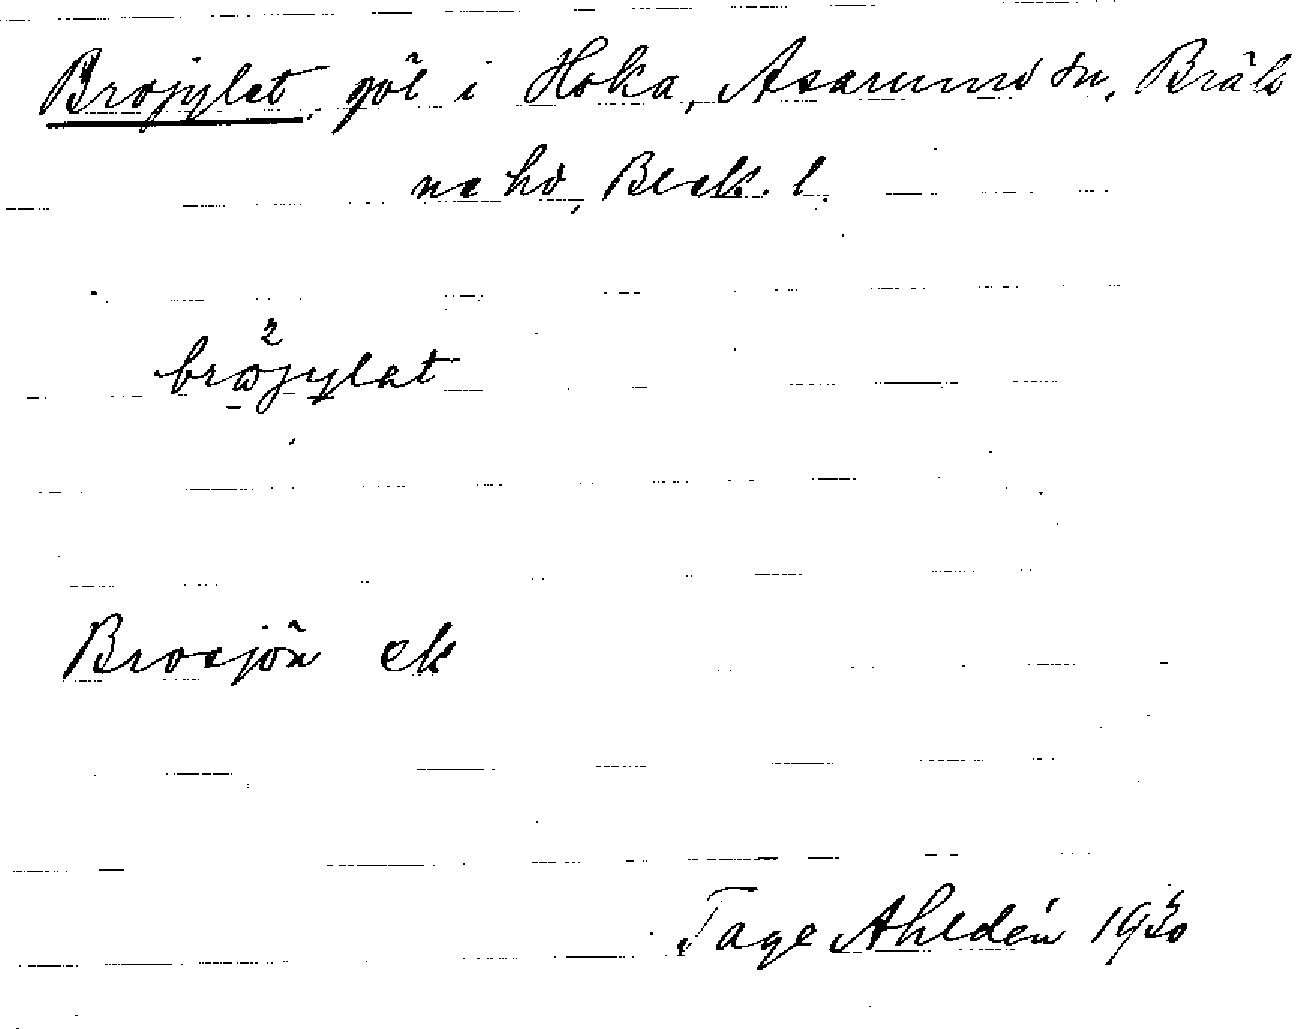 Brojylet, göl i Hoka, Asarums sn, Bräk
ne hd, Blek. l.
2
bröjylat
Brosjön ek
Tage Ahldén 1930